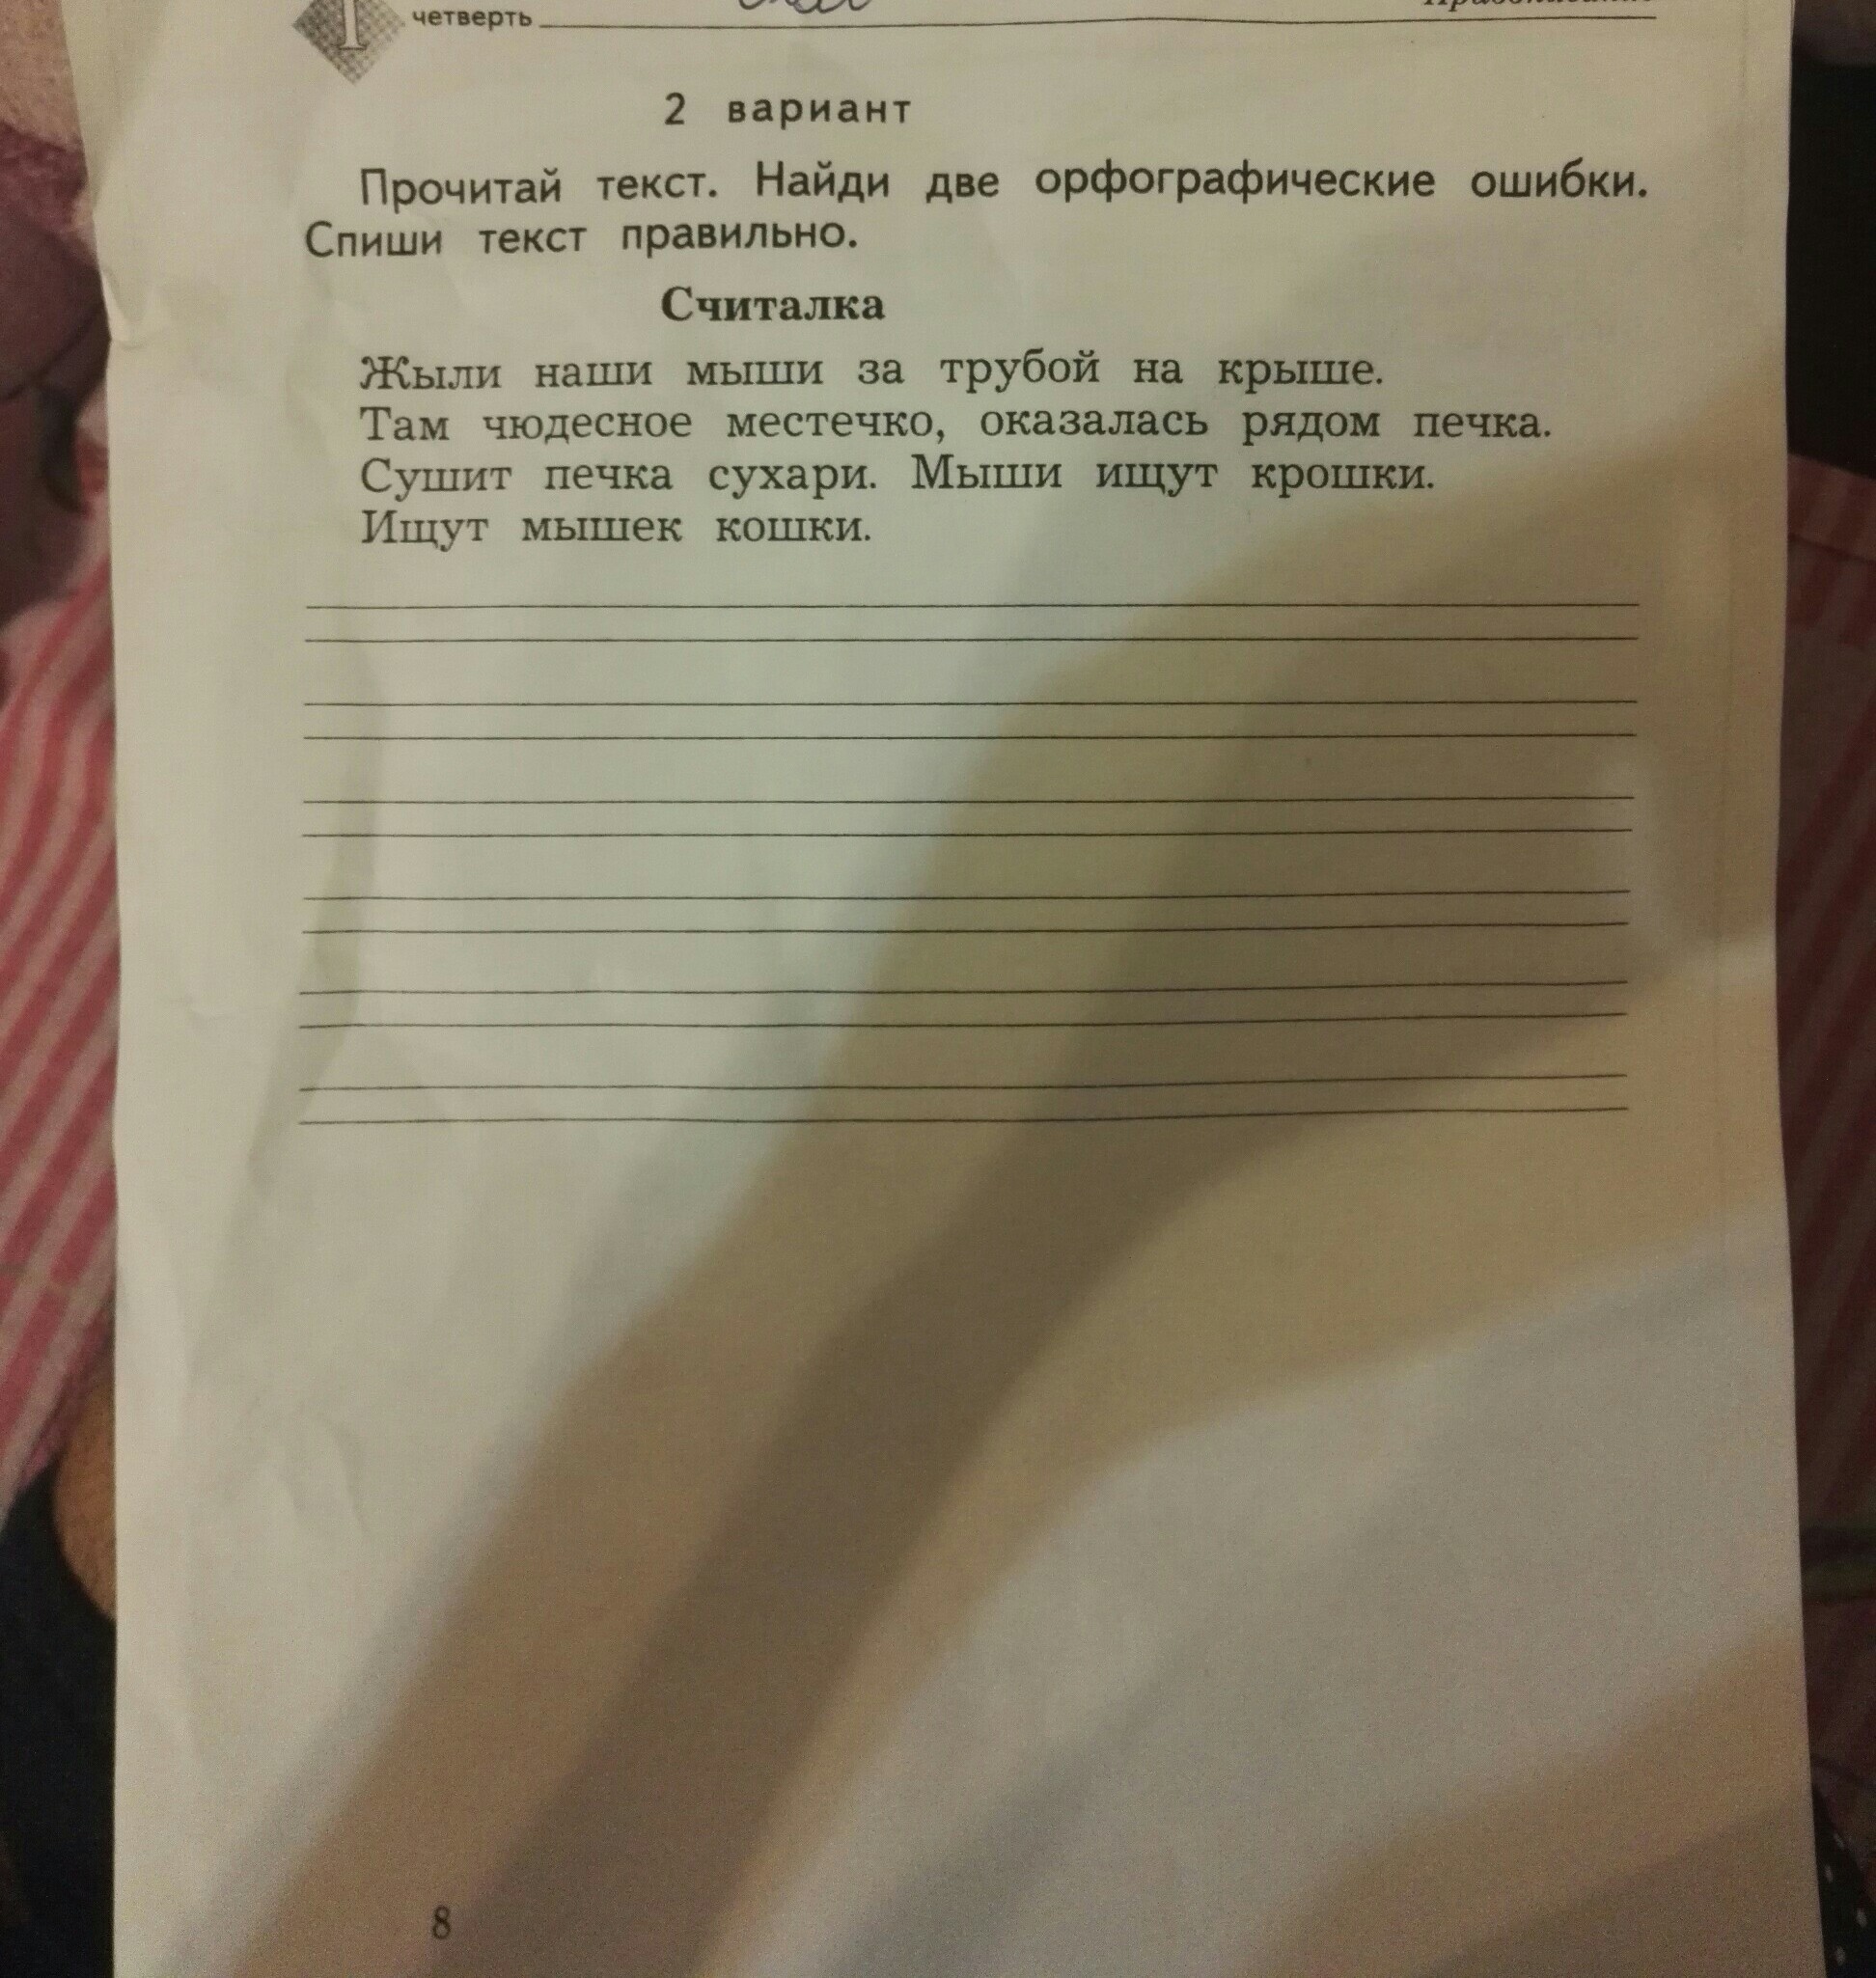 1 четверть
2 вариант
Прочитай текст. Найди две орфографические ошибки.
Спиши текст правильно.
Считалка
Жыли наши мыши за трубой на крыше.
Там чюдесное местечко, оказалась рядом печка.
Сушит печка сухари. Мыши ищут крошки.
Ищут мышек кошки.
8